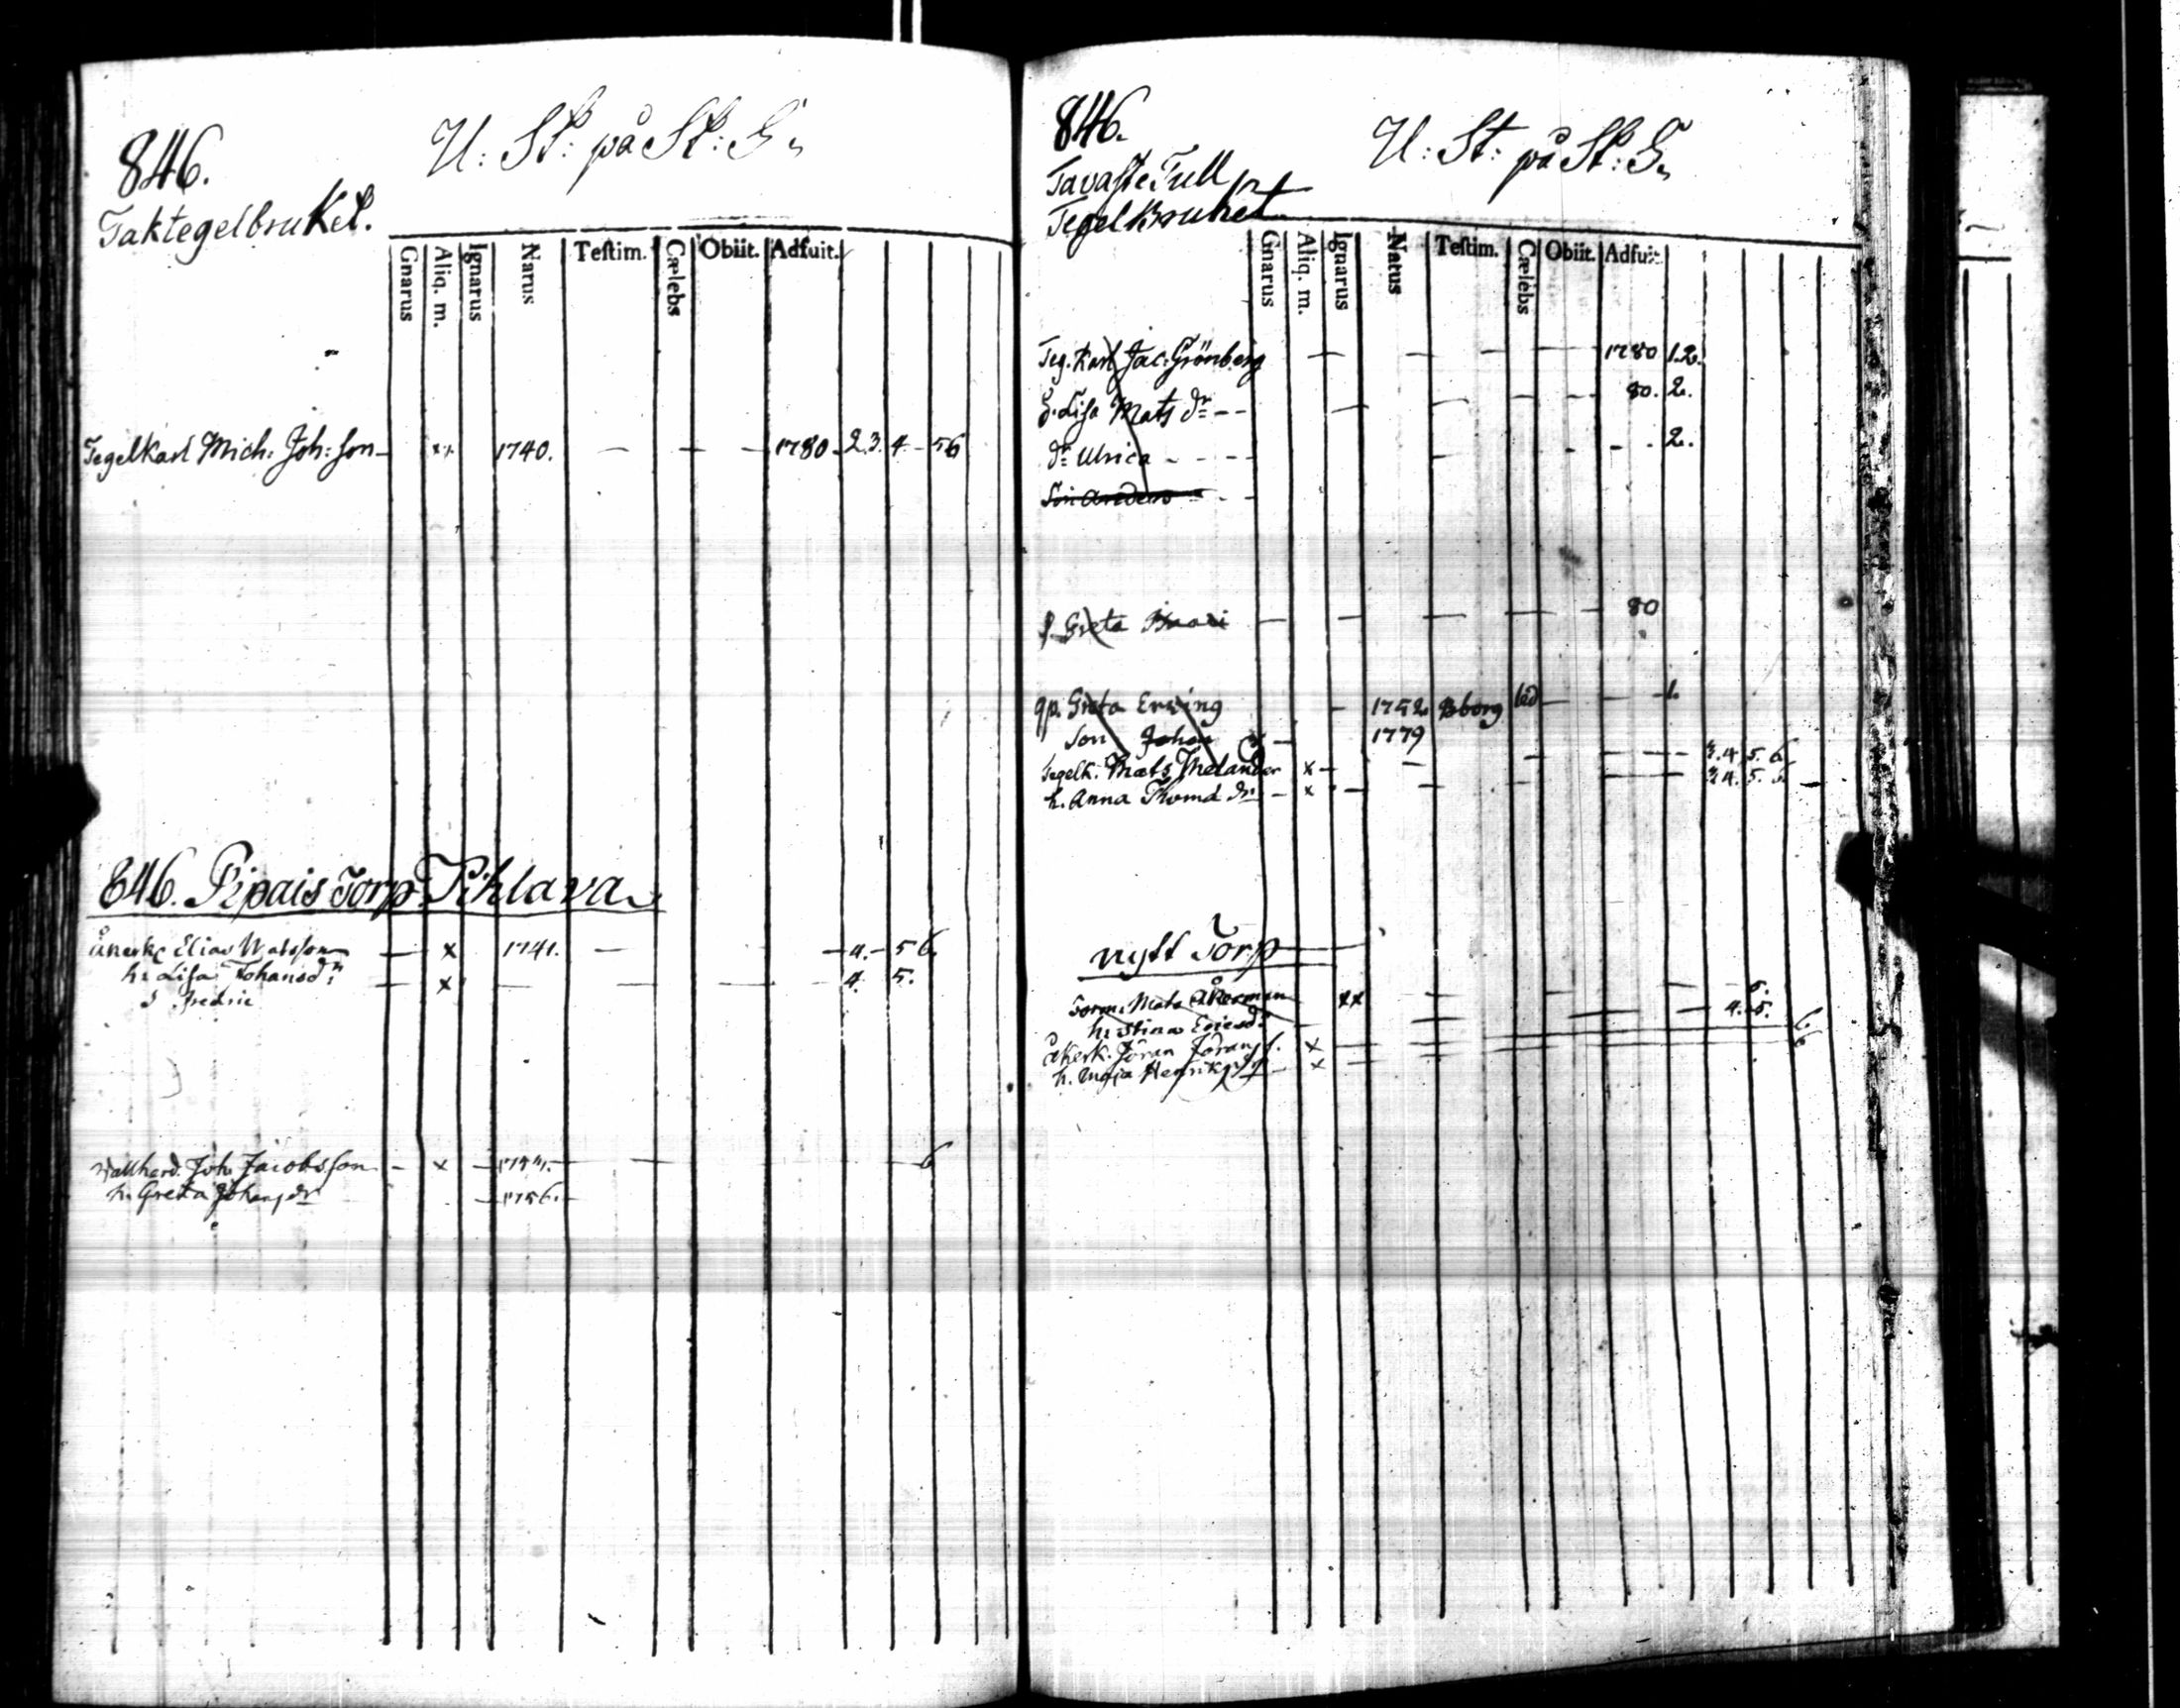 846.
U: St: på St: G.
Taktegelbruket.
Gnarus Aliq. m. Ignarus Narus Testim. Cælebs Obiit. Adfuit.
TegelKarl Mich: Joh: son 1740. 1780 2.3. 4 56
846. Pipais Torp Pihlava
Elias Matsson x 1741. 4. 5 6.
h: Lisa Johansdr: x 4. 5.
S Fredric
Wallherd. Joh: Jacobsson x 6
h. Greta Johansdr 1756.
846.
U: St: på St: G.
Tavaste Tull
TegelBruket
Gnarus Aliq. m. Ignarus Natus Testim. Cælebs Obiit. Adfuit
Teg. Karl Jac: Grönberg 1780 1.2.
h. Lisa Mats dr 80. 2.
dr Ulrica 2.
Son
Greta 80
qp. Greta Erving 1752 Bborg led 1.
Son Johan 1779
Tegelk. Mats Melander x 3.4.5.6
h. Anna Thomæ dr x 3 4.5.6
nytt Torp
Torm: Mats Åkerman xx 5.
h: Stina Ericsd: 4. 5.
Åkerk. Jöran Jörans s. x 6
h. Maja Henriks dr x 6